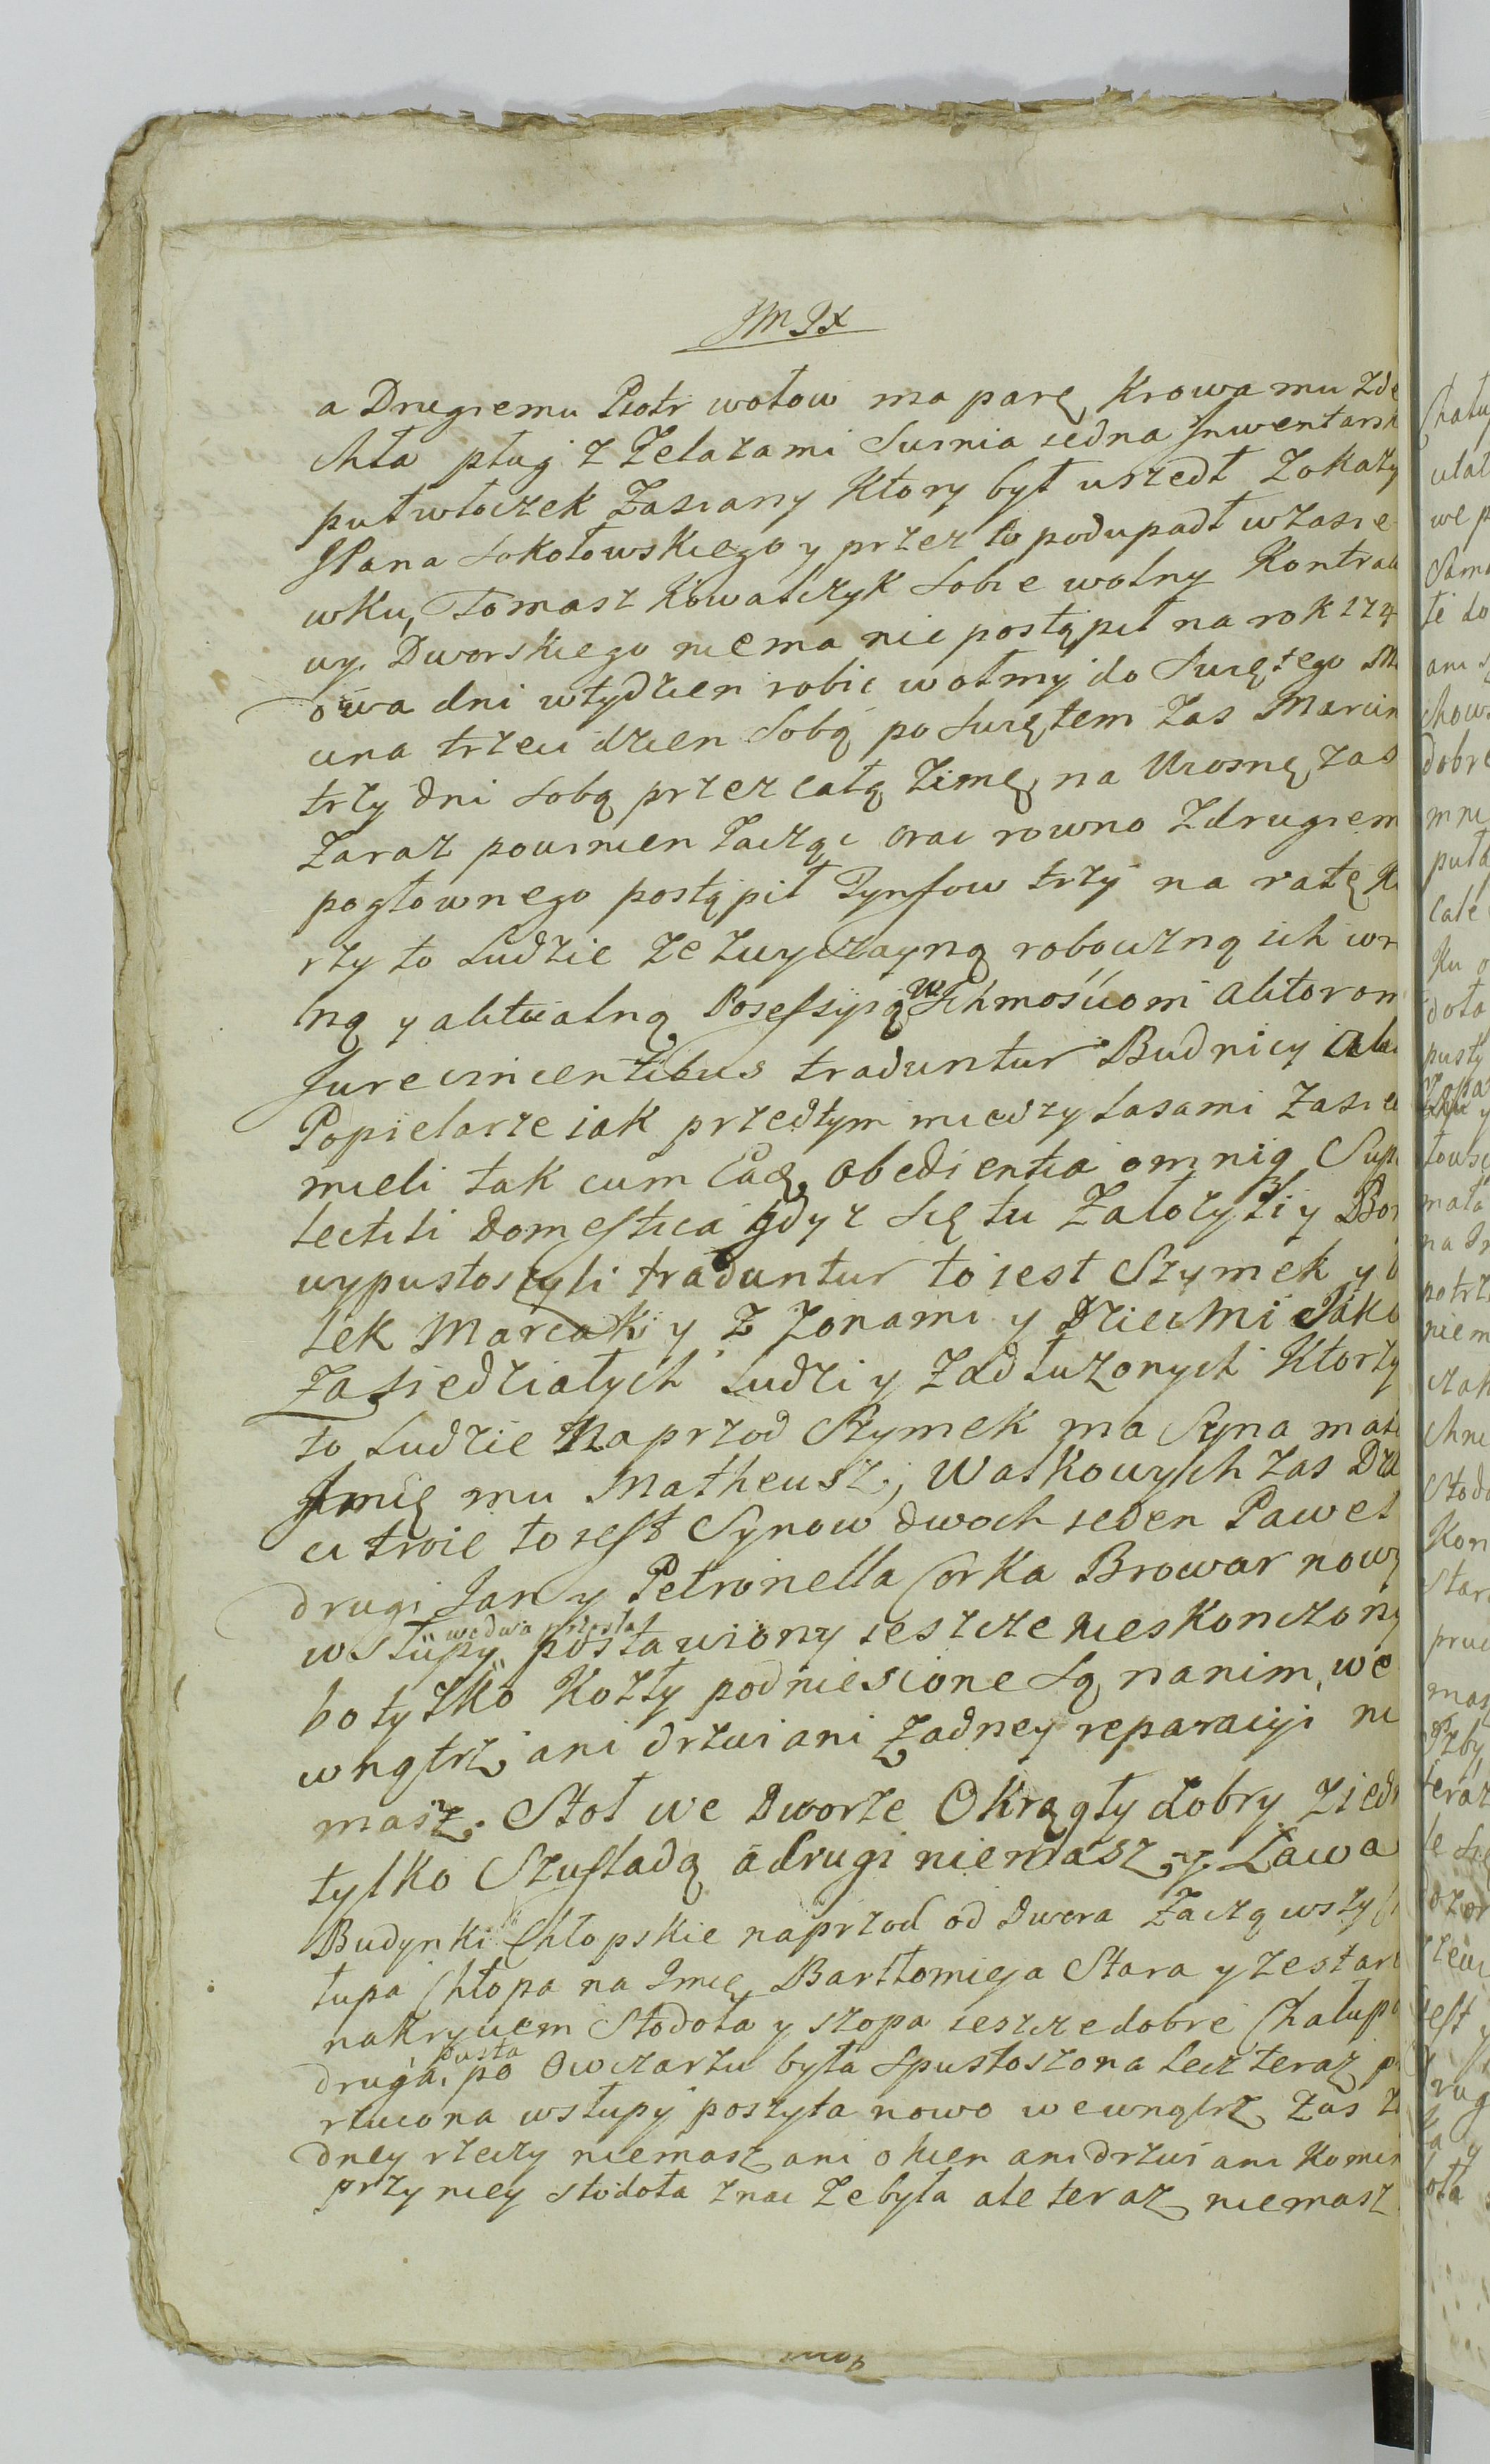 JMJX
a Drugiemu Piotr wołow ma parę, Krowa mu zde
chła pług z Zelazami Susnia iedna Inwentarsk
puł włoczek Zasiany Ktory był uszedł z okazy
JPana Sokołowskiego y przez to podupadł w zasie
wku, Tomasz Kowalczyk Sobie wolny Kontrak
uy. Dworskiego niema nic postąpił na rok 174
dwa dni w tydzien robic wołmy do Swiętego M
cina trzeci dzien Sobą po Swiętem zas Marcin
trzy dni Sobą przez całą Zimę, na Wiosnę zas
Zaraz powinien Zaczącz orac rowno z drugiem
pogłownego postąpił Tynfow trzy na ratę K
rzy to Ludzie ze zwyczayną robocizną ich w
ną y aktualną Possessyią WJchmosciom Aktorom
Jurevincentibus traduntur Budnicy
Popielarze iak przedtym między Lasami Zasie
mieli tak cum Eadę obedientia omnią Sup
lectili Domestica gdyz Się tu Załozyli y Bor
wypustoszyli traduntur to iest Szymek y
łek Marcaki y z zonami y Dziecmi Jako
Zasiedziałych Ludzi y Zadłuzonych Ktorzy
to Ludzie Naprzod Szymek ma Syna mał
Jmię mu Matheusz, Walkowych zas Dzie
ci troie to iest Synow dwoch ieden Paweł
drugi Jan y Petronella Corka Browar nowy
we dwa przesła
w słupy postawiony ieszcze nieskonczony
bo tylko Kozły podniesione Są na nim, we
wnątrz ani drzwi ani Zadney reparacyi nie
masz. Stoł we Dworze Okrągły dobry z iedn
tylko Szufladą a drugi niemasz y Ława
Budynki Chłopskie naprzod od Dwora Zacząwszy
łupa Chłopa na Jmię Bartłomieja Stara y ze star
nakryciem Stodoła y szopa ieszcze dobre Chałupa
pusta
druga, po Owczarzu była Spustoszona lecz teraz p
rzucona w słupy poszyta nowo wewnątrz Zas Z
dney rzeczy niemasz ani okien ani drzwi ani Komin
przy niey stodoła znac ze była ale teraz niemasz
Chału
we p
te do
ani
chow
dobre
mni
puła
całe
Ku o
doła
pusty
szopa
mała
na Dr
potrz
niem
chni
Stodo
Kon
Star
masz
Jzby
teraz
le Się
iest y
drug
ka y
oła